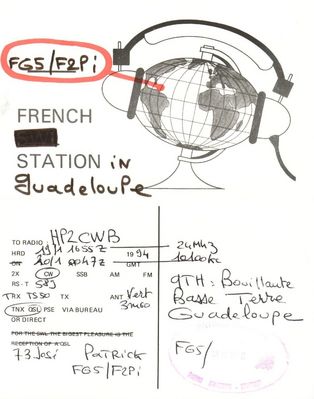 FG5/F2Pi
FRENCH
STATION in
Guadeloupe
TO RADIO: HP2CWB
HRD 19/1 1655Z 1994 24MHz
ON 20/1 0047Z GMT 10100Kc
2X CW SSB AM FM
RS-T 589
TRX TS50 TX ANT Vert
TNX QSL PSE VIA BUREAU
OR DIRECT
QTH: Bouillante
Basse Terre
Guadeloupe
FOR THE SWL THE BIGEST PLEASURE IS THE
RECEPTION OF A QSL
73 José PATRICK
FG5/F2Pi
FG5/